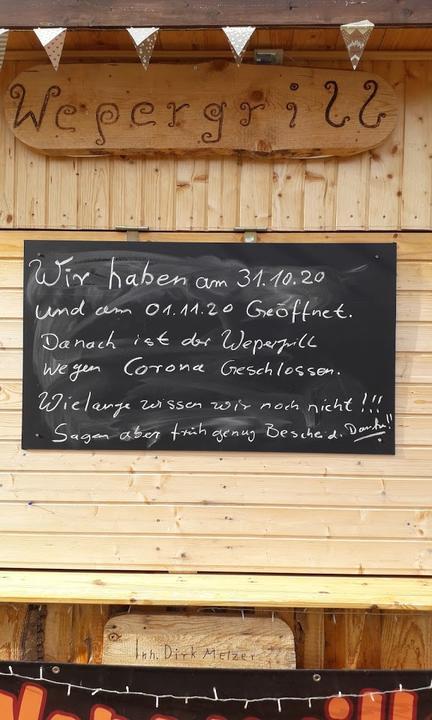 Wepergrill
Wir haben am 31.10.20
und am 01.11.20 Geöffnet.
Danach ist der Wepergrill
wegen Corona Geschlossen.
Wielange wissen wir noch nicht!!!
Sagen aber früh genug Bescheid. Danke!!
Inh. Dirk Melzer